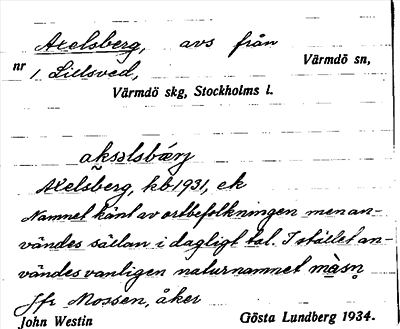 Axelsberg, avs från
nr 1 Lillsved, Värmdö sn,
Värmdö skg, Stockholms l.
aksəlsbærj
Axelsberg, kb 1931, ek
Namnet känt av ortbefolkningen men an-
vändes sällan i dagligt tal. I stället an-
vändes vanligen naturnamnet màsn̥
Jfr Mossen, åker
John Westin Gösta Lundberg 1934.